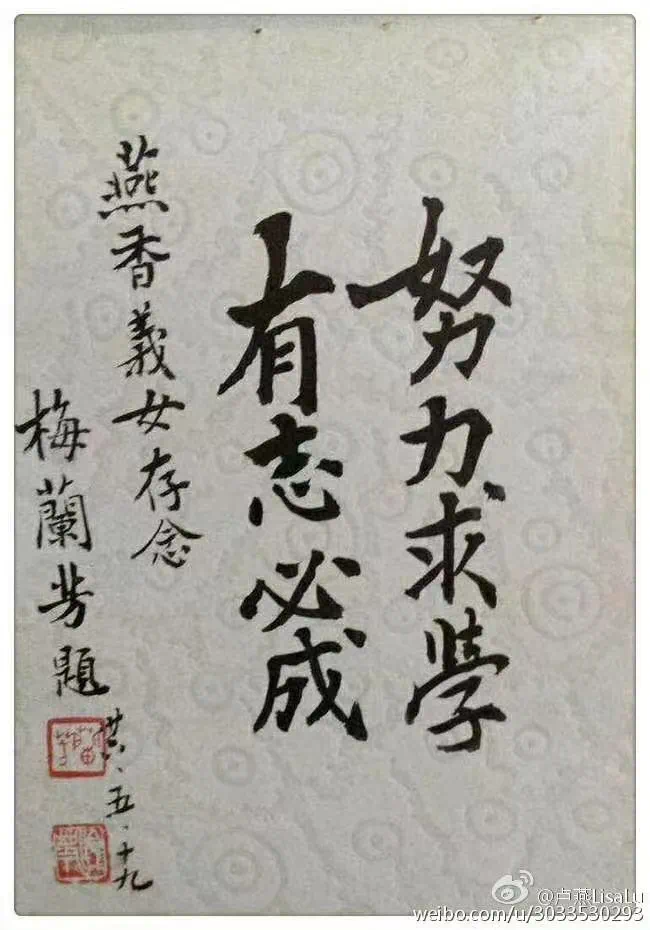 努力求學
有志必成
燕香義女存念
梅蘭芳題
卅六、五、十九
@卢燕LisaLu
weibo.com/u/3033530293